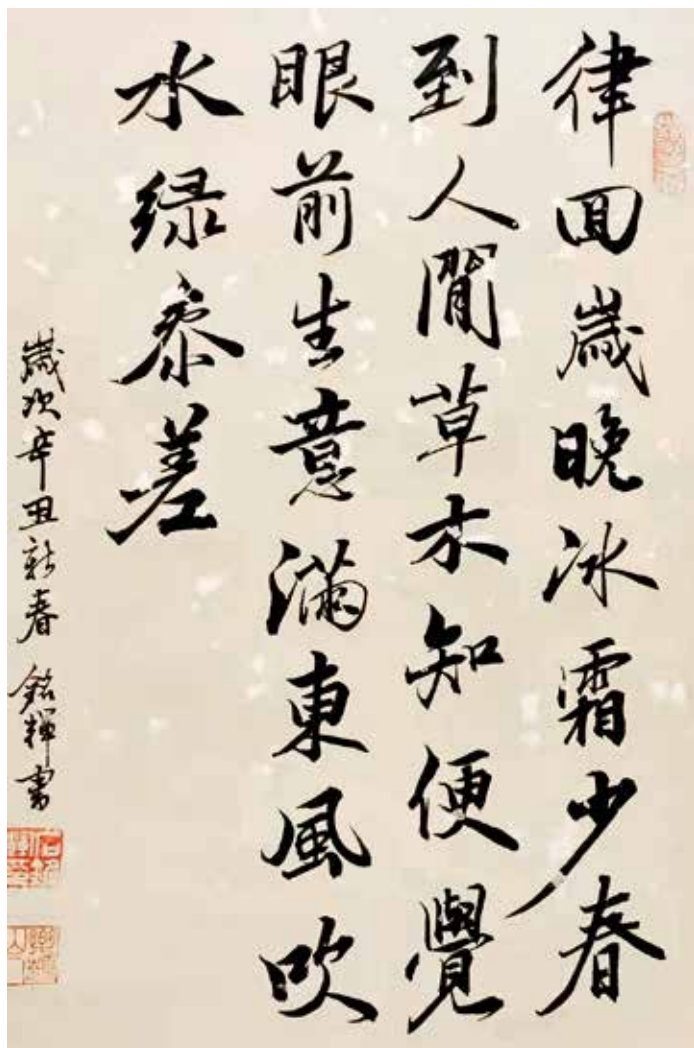 律回歲晚冰霜少春
到人間草木知便覺
眼前生意滿東風吹
水绿參差
歲次辛丑新春 銘輝書